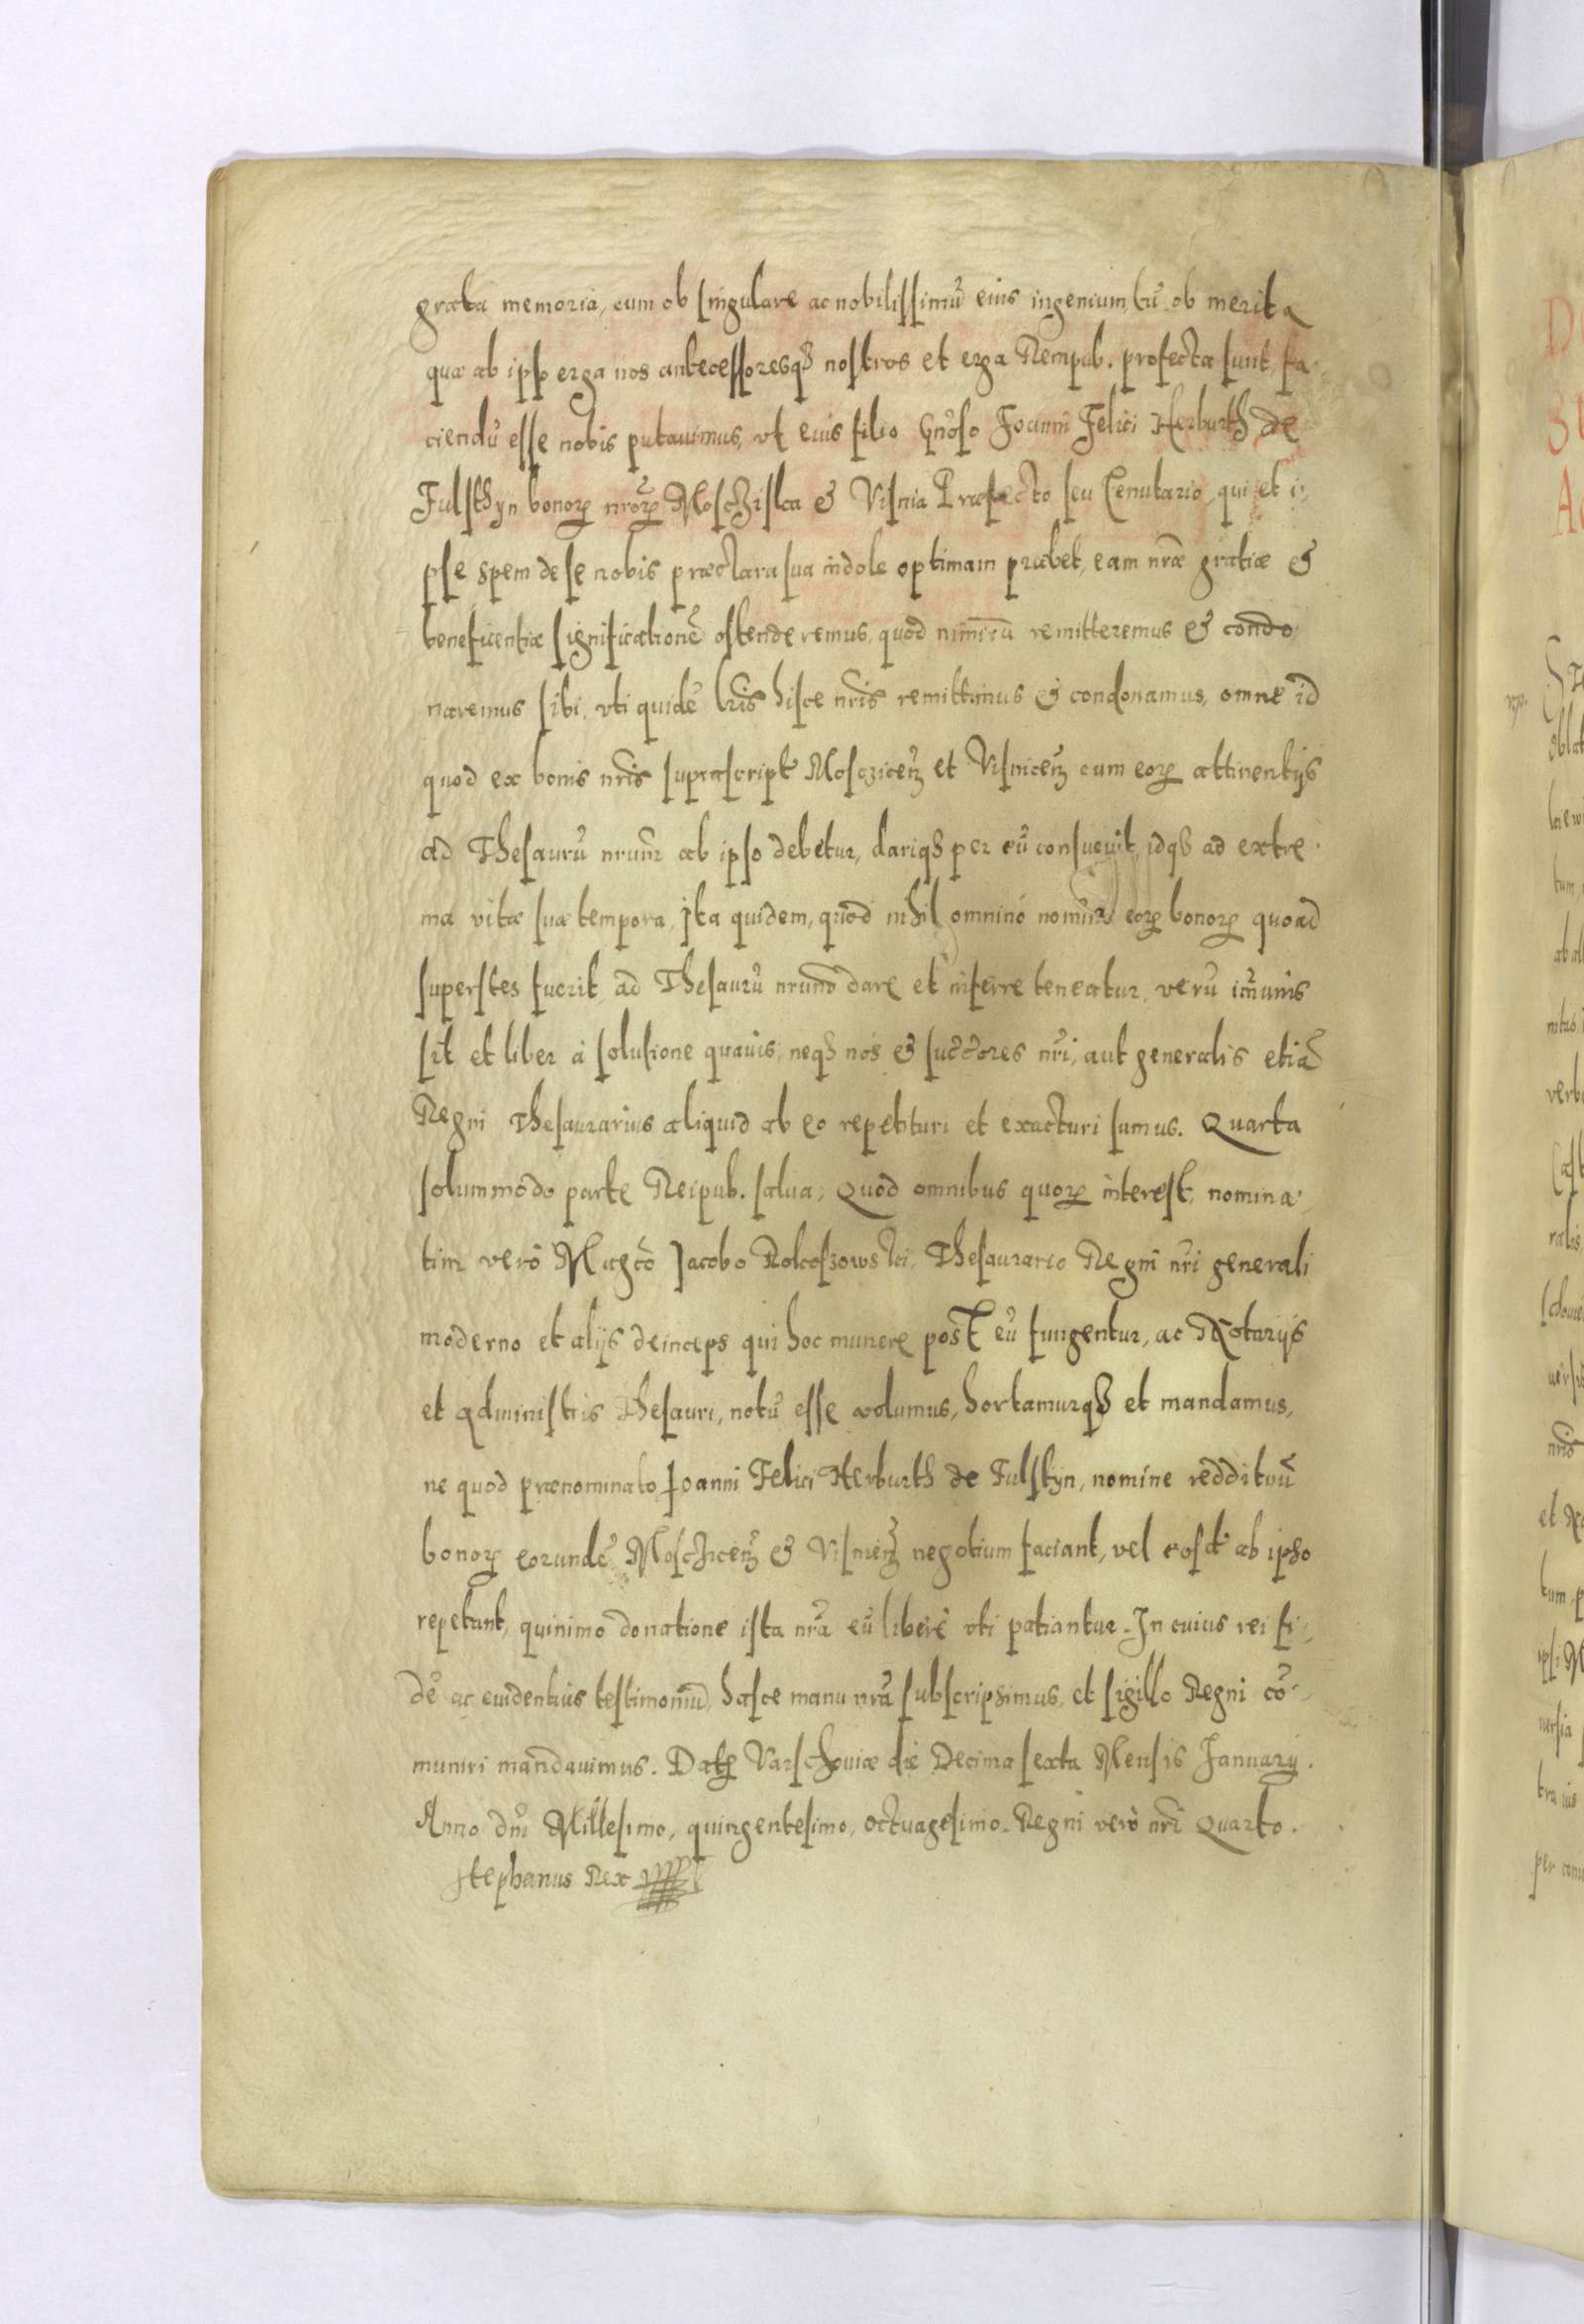 grata memoria, cum ob singulare ac nobilissimũ eius ingenium, tũ ob merita
quæ ab ipso erga nos antecessoresq₃ nostros et erga Rempub. profecta sunt, fa-
ciendũ esse nobis putauimus, vt eius filio Gñoso Joanni Felici Herburth de
Fulsthyn bonorꝝ nrõrꝝ Mosczislca & Visnia Præfecto seu Tenutario, qui et i-
pse spem de se nobis præclara sua indole optimam præbet, eam nrãe gratiæ &
beneficentiæ significationẽ ostenderemus, quod nimirũ remitteremus & condo-
naremus sibi, vti quidẽ lr̃is hisce nr̃is remittimus & condonamus, omne id
quod ex bonis nr̃is suprascript. Mosczicen̄ et Visnicen̄ cum eorꝝ attinentijs
ad Thesaurũ nrum̃ ab ipso debetur, dariq₃ per eũ consueuit, idq₃ ad extre-
ma vitæ suæ tempora, Jta quidem, quod nihil omnino nomine eorꝝ bonorꝝ quoad
superstes fuerit, ad Thesaurũ nrum̃ dare et inferre teneatur, verũ im̃unis
sit et liber à solutione quauis, neq₃ nos & succ̃ores nr̃i, aut generalis etiã
Regni Thesaurarius aliquid ab eo repetituri et exacturi sumus. Quarta
solummodo parte Reipub. salua, Quod omnibus quorꝝ interest, nomina-
tim verò Magc̃o Jacobo Rokoszowski, Thesaurario Regni nr̃i generali
moderno et alijs deinceps qui hoc munere post eũ fungentur, ac Notarijs
et administris Thesauri, notũ esse volumus, hortamurq₃ et mandamus,
ne quod prænominato Joanni Felici Herburth de Fulstyn, nomine reddituũ
bonorꝝ eorundẽ Mosczicen̄ & Visnien̄ negotium faciant, vel eosd. ab ipso
repetant, quinimo donatione ista nrã eũ liberè vti patiantur. In cuius rei fi-
dẽ ac euidentius testimoniũ, hasce manu nrã subscripsimus, et sigillo Regni cõ-
muniri mandauimus. Datꝝ Varschouiæ die Decima sexta Mensis January.
Anno dñi Millesimo, quingentesimo, octuagesimo. Regni verò nr̃i Quarto.
Stephanus Rex